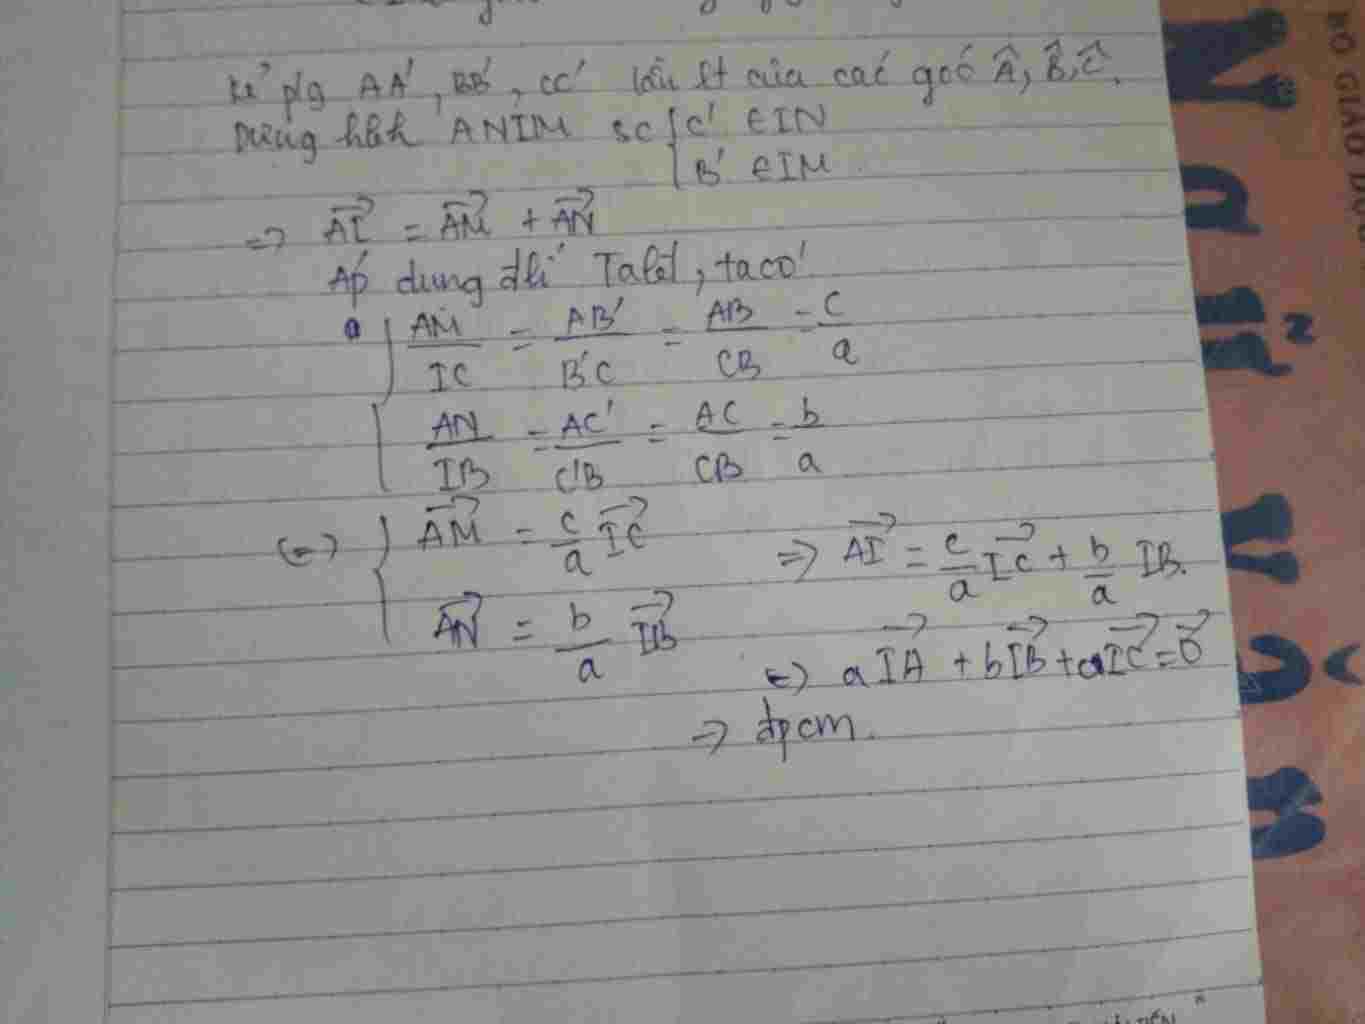 kẻ p/g AA', BB', CC' lần lt của các goó Â, B̂, Ĉ.
Dựng hbh ANIM sc { C' ∈ IN
B' ∈ IM
=> AI→ = AM→ + AN→
Áp dung đlí Talet, ta có
AM/IC = AB'/B'C = AB/CB = c/a
AN/IB = AC'/C'B = AC/CB = b/a
(=) { AM→ = c/a IC→
AN→ = b/a IB→
=> AI→ = c/a IC→ + b/a IB.
(=) a IA→ + b IB→ + a IC→ = 0→
=> đpcm.
Ngữ văn
BỘ GIÁO DỤC